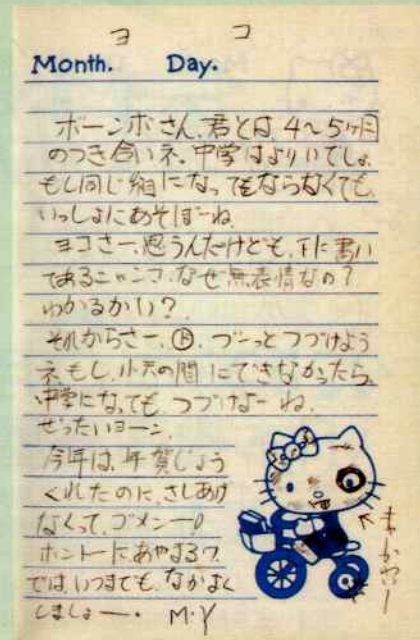 ヨ コ
Month. Day.
ボーンボさん、君とは、4～5ヶ月
のつき合いネ。中学はよりいでしょ。
もし同じ組になってもならなくても、
いっしょにあそぼーね。
ヨコさー、思うんだけども、下に書い
てあるニャンコ、なぜ無表情なの?
わかるかい?
それからさー、ズーっとつづけよう
ネ。もし、小六の間にできなかったら、
中学になっても、つづけよーね。
ぜったいヨーン。
今年は、年賀じょう
くれたのに、さしあげ
なくって、ゴメンー!
ホントーにあやまるワ。
では、いつまでも、なかよく
しましょー。 M・Y